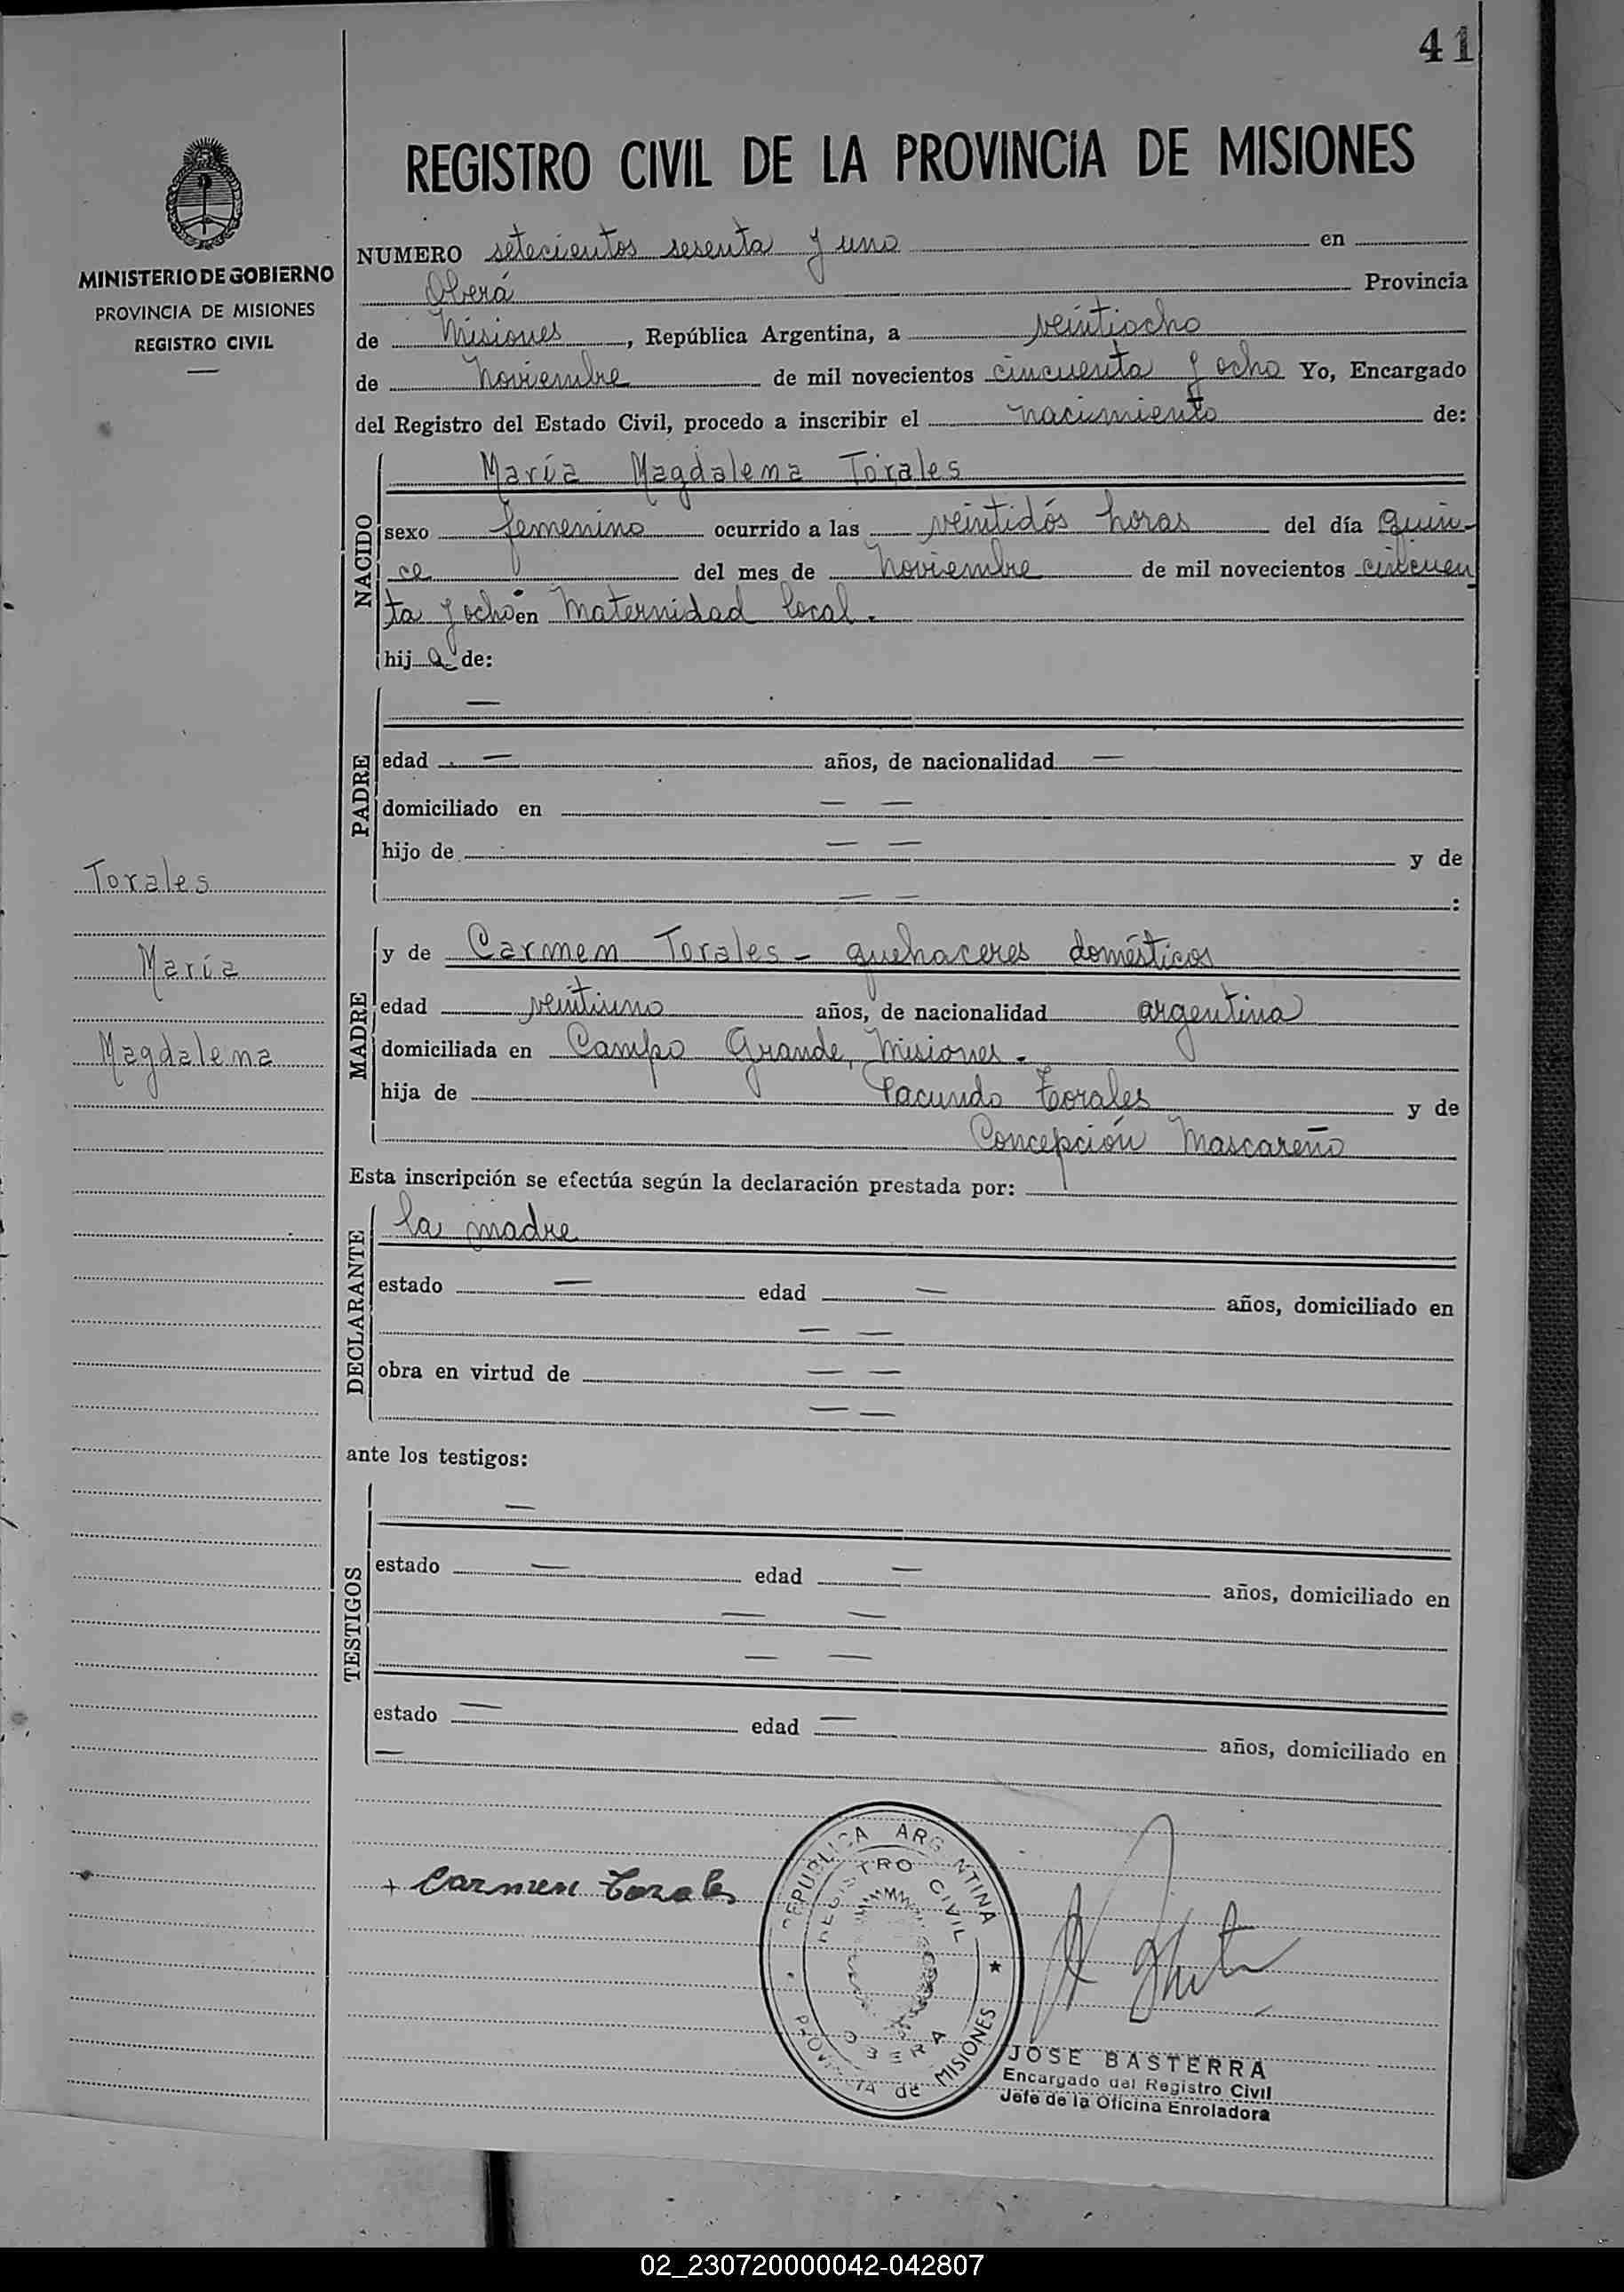 41
REGISTRO CIVIL DE LA PROVINCIA DE MISIONES
MINISTERIO DE GOBIERNO
PROVINCIA DE MISIONES
REGISTRO CIVIL
NUMERO setecientos sesenta y uno en
Oberá Provincia
de Misiones, República Argentina, a veintiocho
de noviembre de mil novecientos cincuenta y ocho Yo, Encargado
del Registro del Estado Civil, procedo a inscribir el nacimiento de:
NACIDO
María Magdalena Torales
sexo femenino ocurrido a las veintidós horas del día quin-
ce del mes de noviembre de mil novecientos cincuen
ta y ocho en Maternidad local.
hija de:
PADRE
—
edad — años, de nacionalidad —
domiciliado en — —
hijo de — — y de
— — :
Torales
María
Magdalena
MADRE
y de Carmen Torales - quehaceres domésticos
edad veintiuno años, de nacionalidad argentina
domiciliada en Campo Grande, Misiones.
hija de Facundo Torales y de
Concepción Mascareño
Esta inscripción se efectúa según la declaración prestada por:
DECLARANTE
la madre
estado — edad — años, domiciliado en
— —
obra en virtud de — —
— —
ante los testigos:
TESTIGOS
—
estado — edad — años, domiciliado en
— —
— —
estado — edad — años, domiciliado en
—
+ Carmen Torales
REPUBLICA ARGENTINA
REGISTRO CIVIL
OBERA
PROVINCIA de MISIONES
JOSE BASTERRA
Encargado del Registro Civil
Jefe de la Oficina Enroladora
02_230720000042-042807